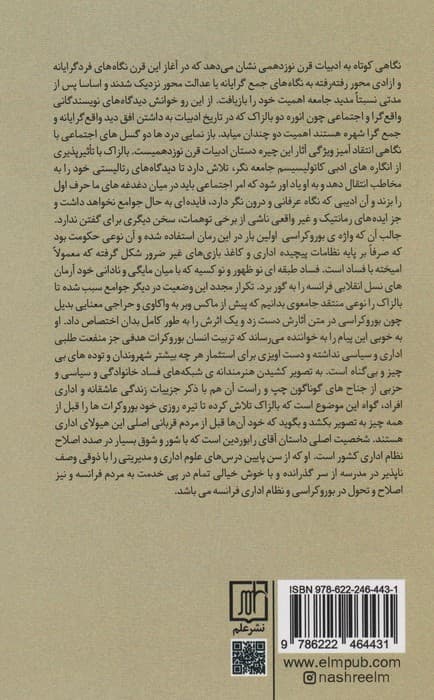 نگاهی کوتاه به ادبیات قرن نوزدهمی نشان می‌دهد که در آغاز این قرن نگاه‌های فردگرایانه
و ازادی محور رفته‌رفته به نگاه‌های جمع گرایانه یا عدالت محور نزدیک شدند و اساسا پس از
مدتی نسبتاً مدید جامعه اهمیت خود را بازیافت. از این رو خوانش دیدگاه‌های نویسندگانی
واقع‌گرا و اجتماعی چون انوره دو بالزاک که در تاریخ ادبیات به داشتن افق دید واقع‌گرایانه و
جمع گرا شهره هستند اهمیت دو چندان میابد. باز نمایی درد ها دو گسل های اجتماعی با
نگاهی انتقاد آمیز ویژگی آثار این چیره دستان ادبیات قرن نوزدهمیست. بالزاک با تأثیرپذیری
از انگاره های ادبی کاتولیسیسم جامعه نگر، تلاش دارد تا دیدگاه‌های رئالیستی خود را به
مخاطب انتقال دهد و به او یاد اور شود که امر اجتماعی باید در میان دغدغه های ما حرف اول
را بزند و آن ادیبی که نگاه عرفانی و درون نگر دارد، فایده‌ای به حال جوامع نخواهد داشت و
جز ایده‌های رمانتیک و غیر واقعی ناشی از برخی توهمات، سخن دیگری برای گفتن ندارد.
جالب آن که واژه ی بوروکراسی اولین بار در این رمان استفاده شده و آن نوعی حکومت بود
که صرفاً بر پایه نظامات پیچیده اداری و کاغذ بازی‌های غیر ضرور شکل گرفته که معمولاً
امیخته با فساد است. فساد طبقه ای نو ظهور و نو کسیه که با میان مایگی و نادانی خود آرمان
های نسل انقلابی فرانسه را به گور برد. تکرار مجدد این وضعیت در دیگر جوامع سبب شده تا
بالزاک را نوعی منتقد جامعوی بدانیم که پیش از ماکس وبر به واکاوی و حراجی معنایی بدیل
چون بوروکراسی در متن آثارش دست زد و یک اثرش را به طور کامل بدان اختصاص داد. او
به خوبی این پیام را به خواننده می‌رساند که تربیت انسان بوروکرات هدفی جز منفعت طلبی
اداری و سیاسی نداشته و دست اویزی برای استثمار هر چه بیشتر شهروندان و توده های بی
چیز و بی‌گناه است. به تصویر کشیدن هنرمندانه ی شبکه‌های فساد خانوادگی و سیاسی و
حزبی از جناح های گوناگون چپ و راست آن هم با ذکر جزییات زندگی عاشقانه و اداری
افراد، گواه این موضوع است که بالزاک تلاش کرده تا تیره روزی خود بوروکرات ها را قبل از
همه چیز به تصویر بکشد و بگوید که خود آن‌ها قبل از مردم قربانی اصلی این هیولای اداری
هستند. شخصیت اصلی داستان آقای رابوردین است که با شور و شوق بسیار در صدد اصلاح
نظام اداری کشور است. او که از سن پایین درس‌های علوم اداری و مدیریتی را با ذوقی وصف
ناپذیر در مدرسه از سر گذرانده و با خوش خیالی تمام در پی خدمت به مردم فرانسه و نیز
اصلاح و تحول در بوروکراسی و نظام اداری فرانسه می باشد.
ISBN 978-622-246-443-1
9 786222 464431
علم
نشرعلم
www.elmpub.com
nashreelm